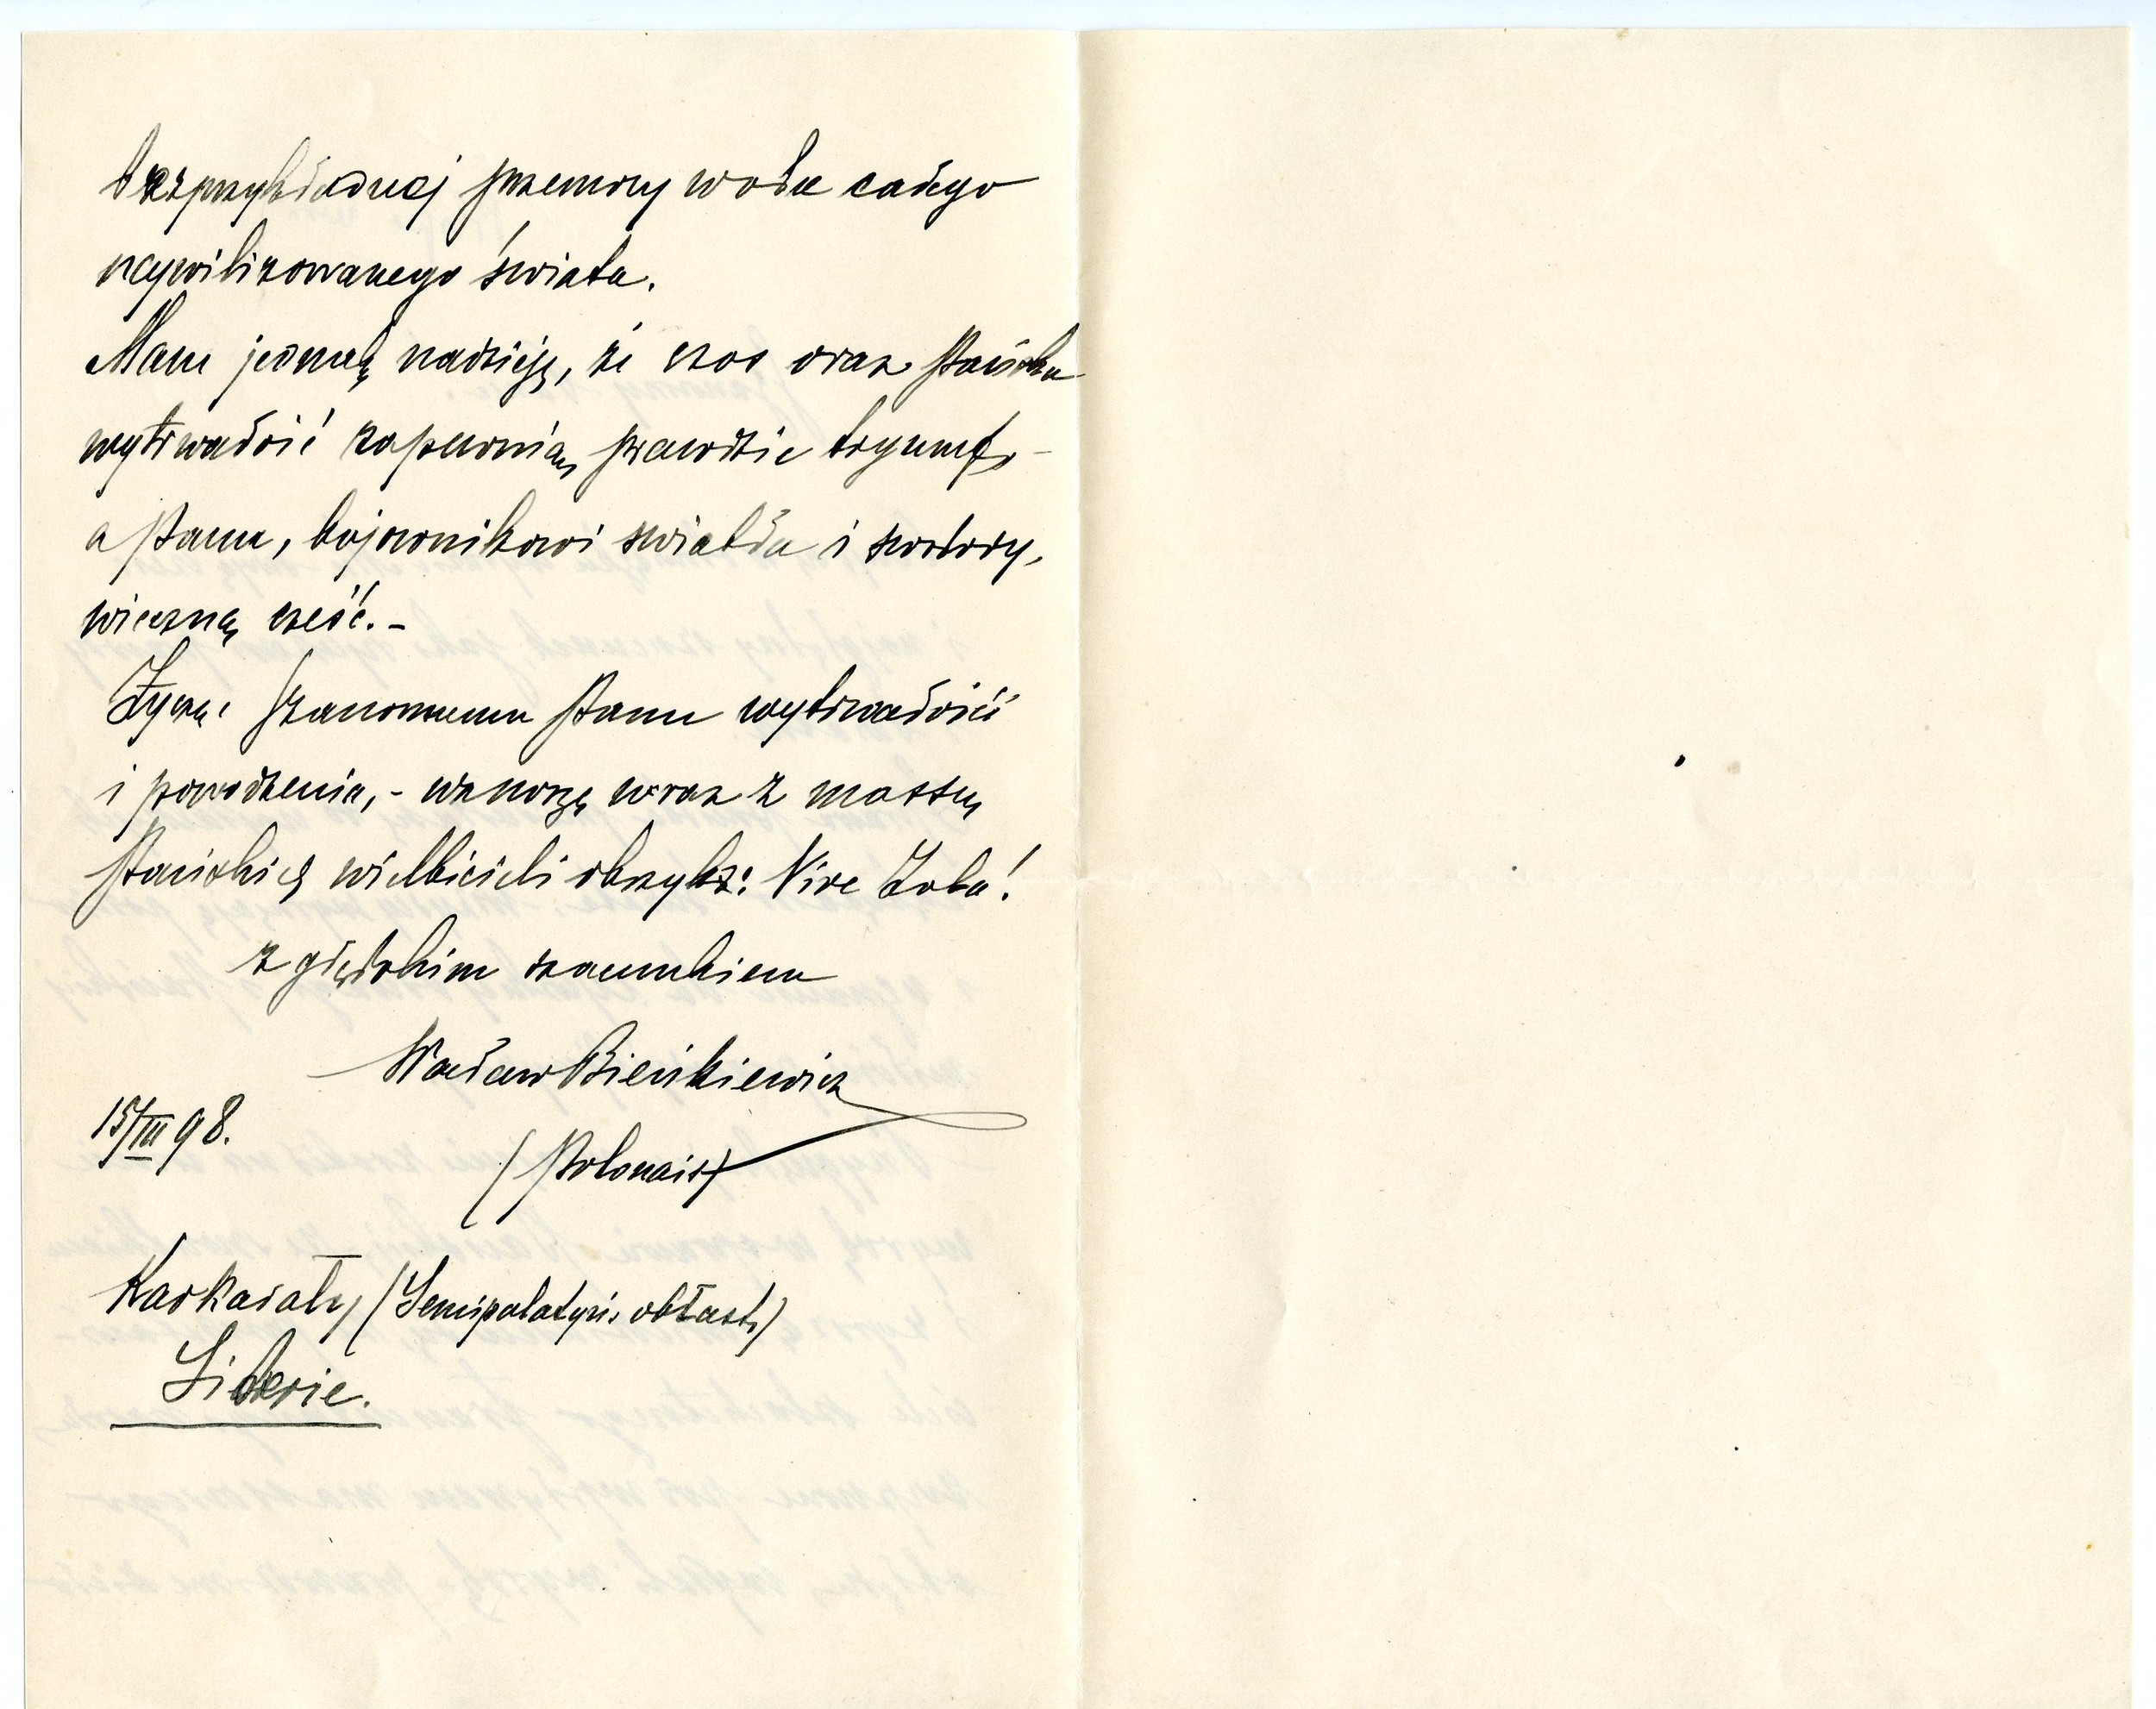 bezprzykładnej przemocy wobec całego
ucywilizowanego świata.
Mam jednak nadzieję, że czas oraz Pańska
wytrwałość zapewnią prawdzie tryumf,-
a Panu, bojownikowi światła i swobody,
wieczną cześć.-
Życząc Szanownemu Panu wytrwałości
i powodzenia,- wznoszę wraz z massą
Pańskich wielbicieli okrzyk: Vive Zola!
z głębokim szacunkiem
Wacław Bieńkiewicz
15/III 98.
(Polonais)
Karkarały, (Semipałatyńs. obłast,)
Siberie.